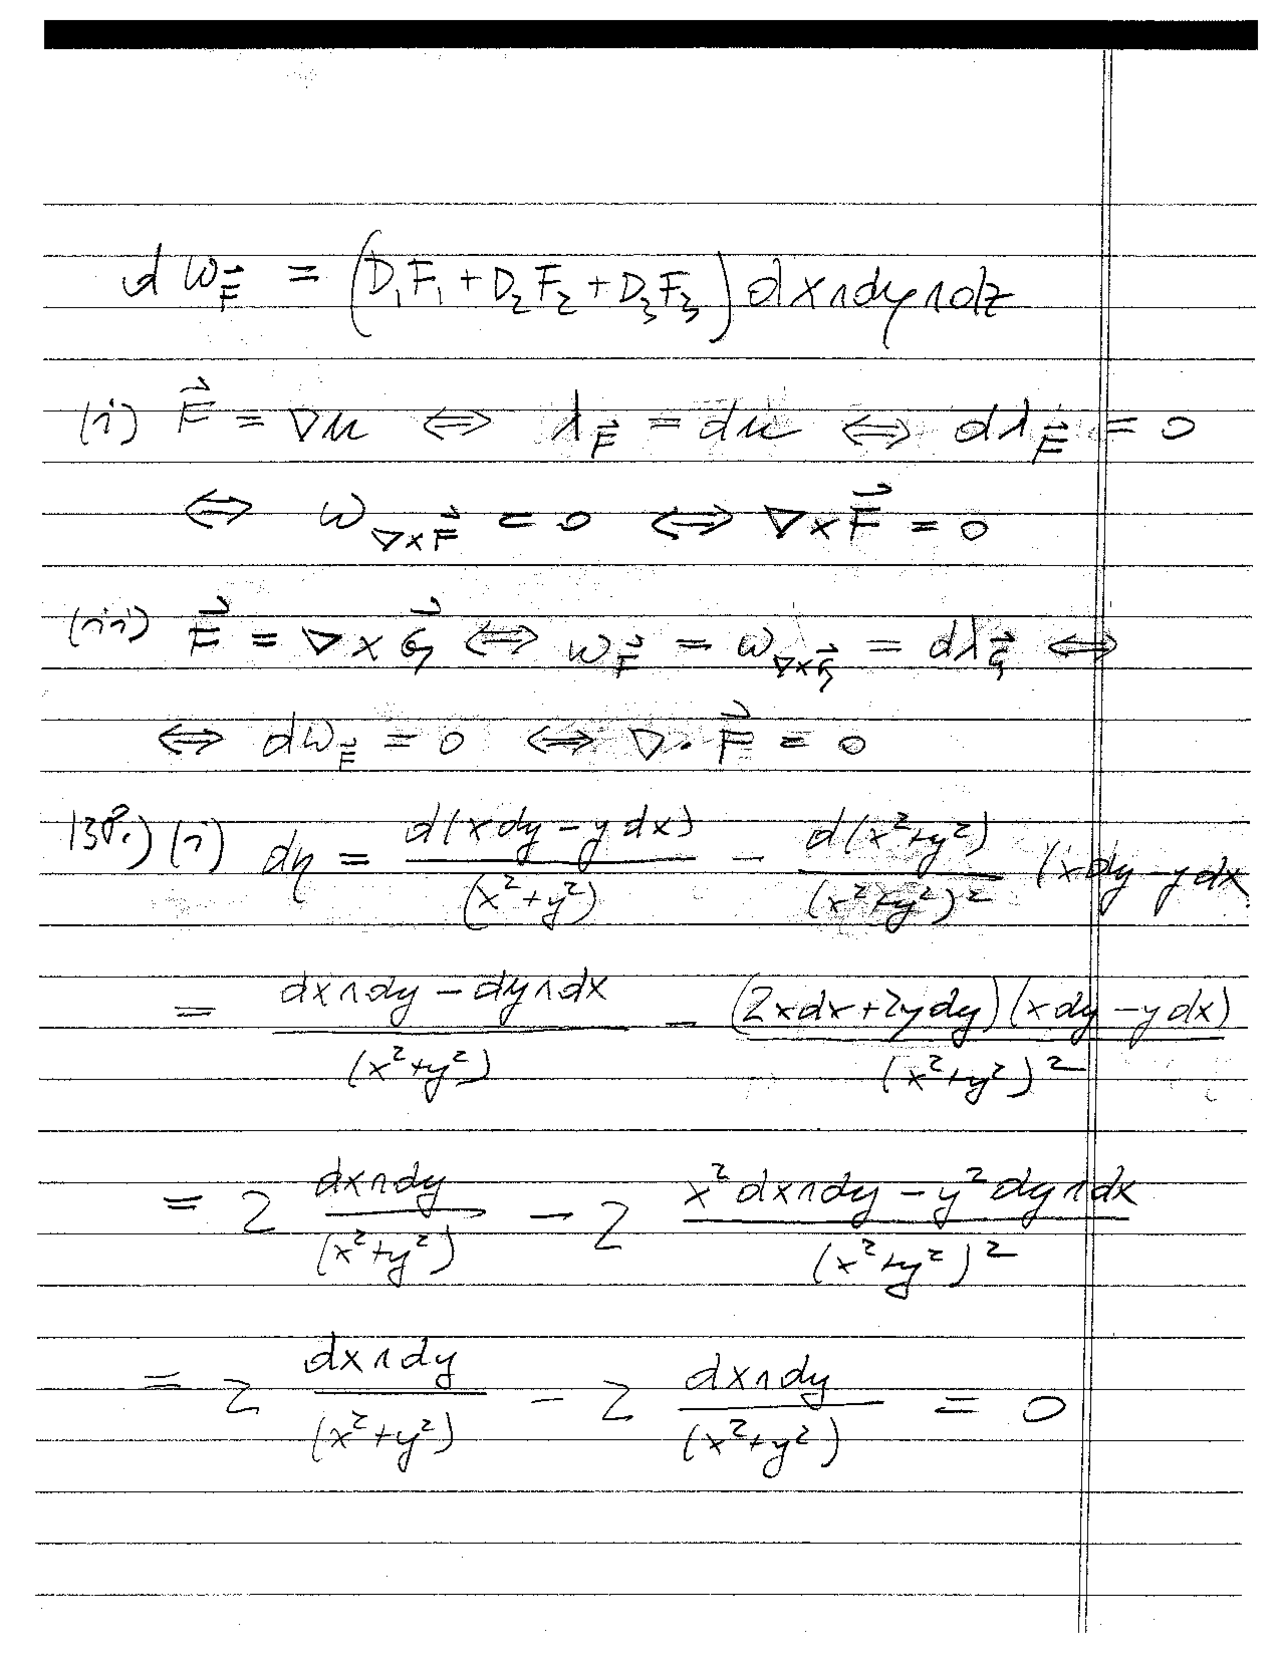 dω_F⃗ = (D₁F₁ + D₂F₂ + D₃F₃) dx∧dy∧dz
(i) F⃗ = ∇u ⇔ λ_F⃗ = du ⇔ dλ_F⃗ = 0
⇔ ω_∇×F⃗ = 0 ⇔ ∇×F⃗ = 0
(ii) F⃗ = ∇×G⃗ ⇔ ω_F⃗ = ω_∇×G⃗ = dλ_G⃗ ⇔
⇔ dω_F⃗ = 0 ⇔ ∇·F⃗ = 0
(i) dη = d(x dy − y dx)/(x²+y²) − d(x²+y²)/(x²+y²)² (x dy − y dx
= (dx∧dy − dy∧dx)/(x²+y²) − (2x dx + 2y dy)(x dy − y dx)/(x²+y²)²
= 2 dx∧dy/(x²+y²) − 2 (x² dx∧dy − y² dy∧dx)/(x²+y²)²
= 2 dx∧dy/(x²+y²) − 2 dx∧dy/(x²+y²) = 0